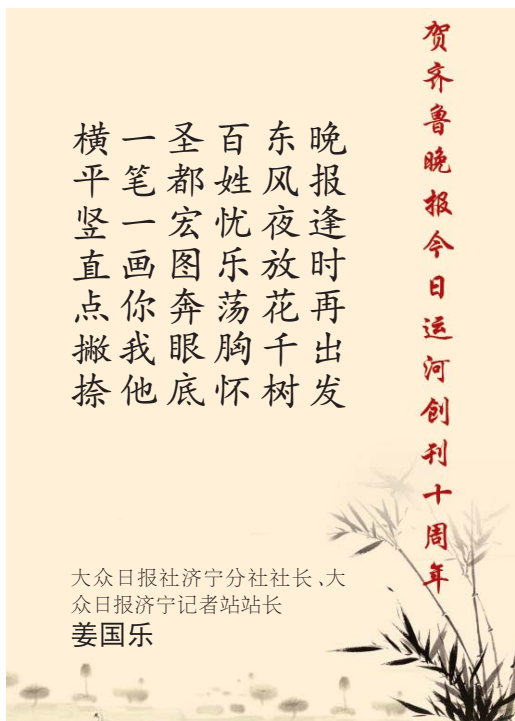 贺齐鲁晚报今日运河创刊十周年
晚报逢时再出发
东风夜放花千树
百姓忧乐荡胸怀
圣都宏图奔眼底
一笔一画你我他
横平竖直点撇捺
大众日报社济宁分社社长、大
众日报济宁记者站站长
姜国乐